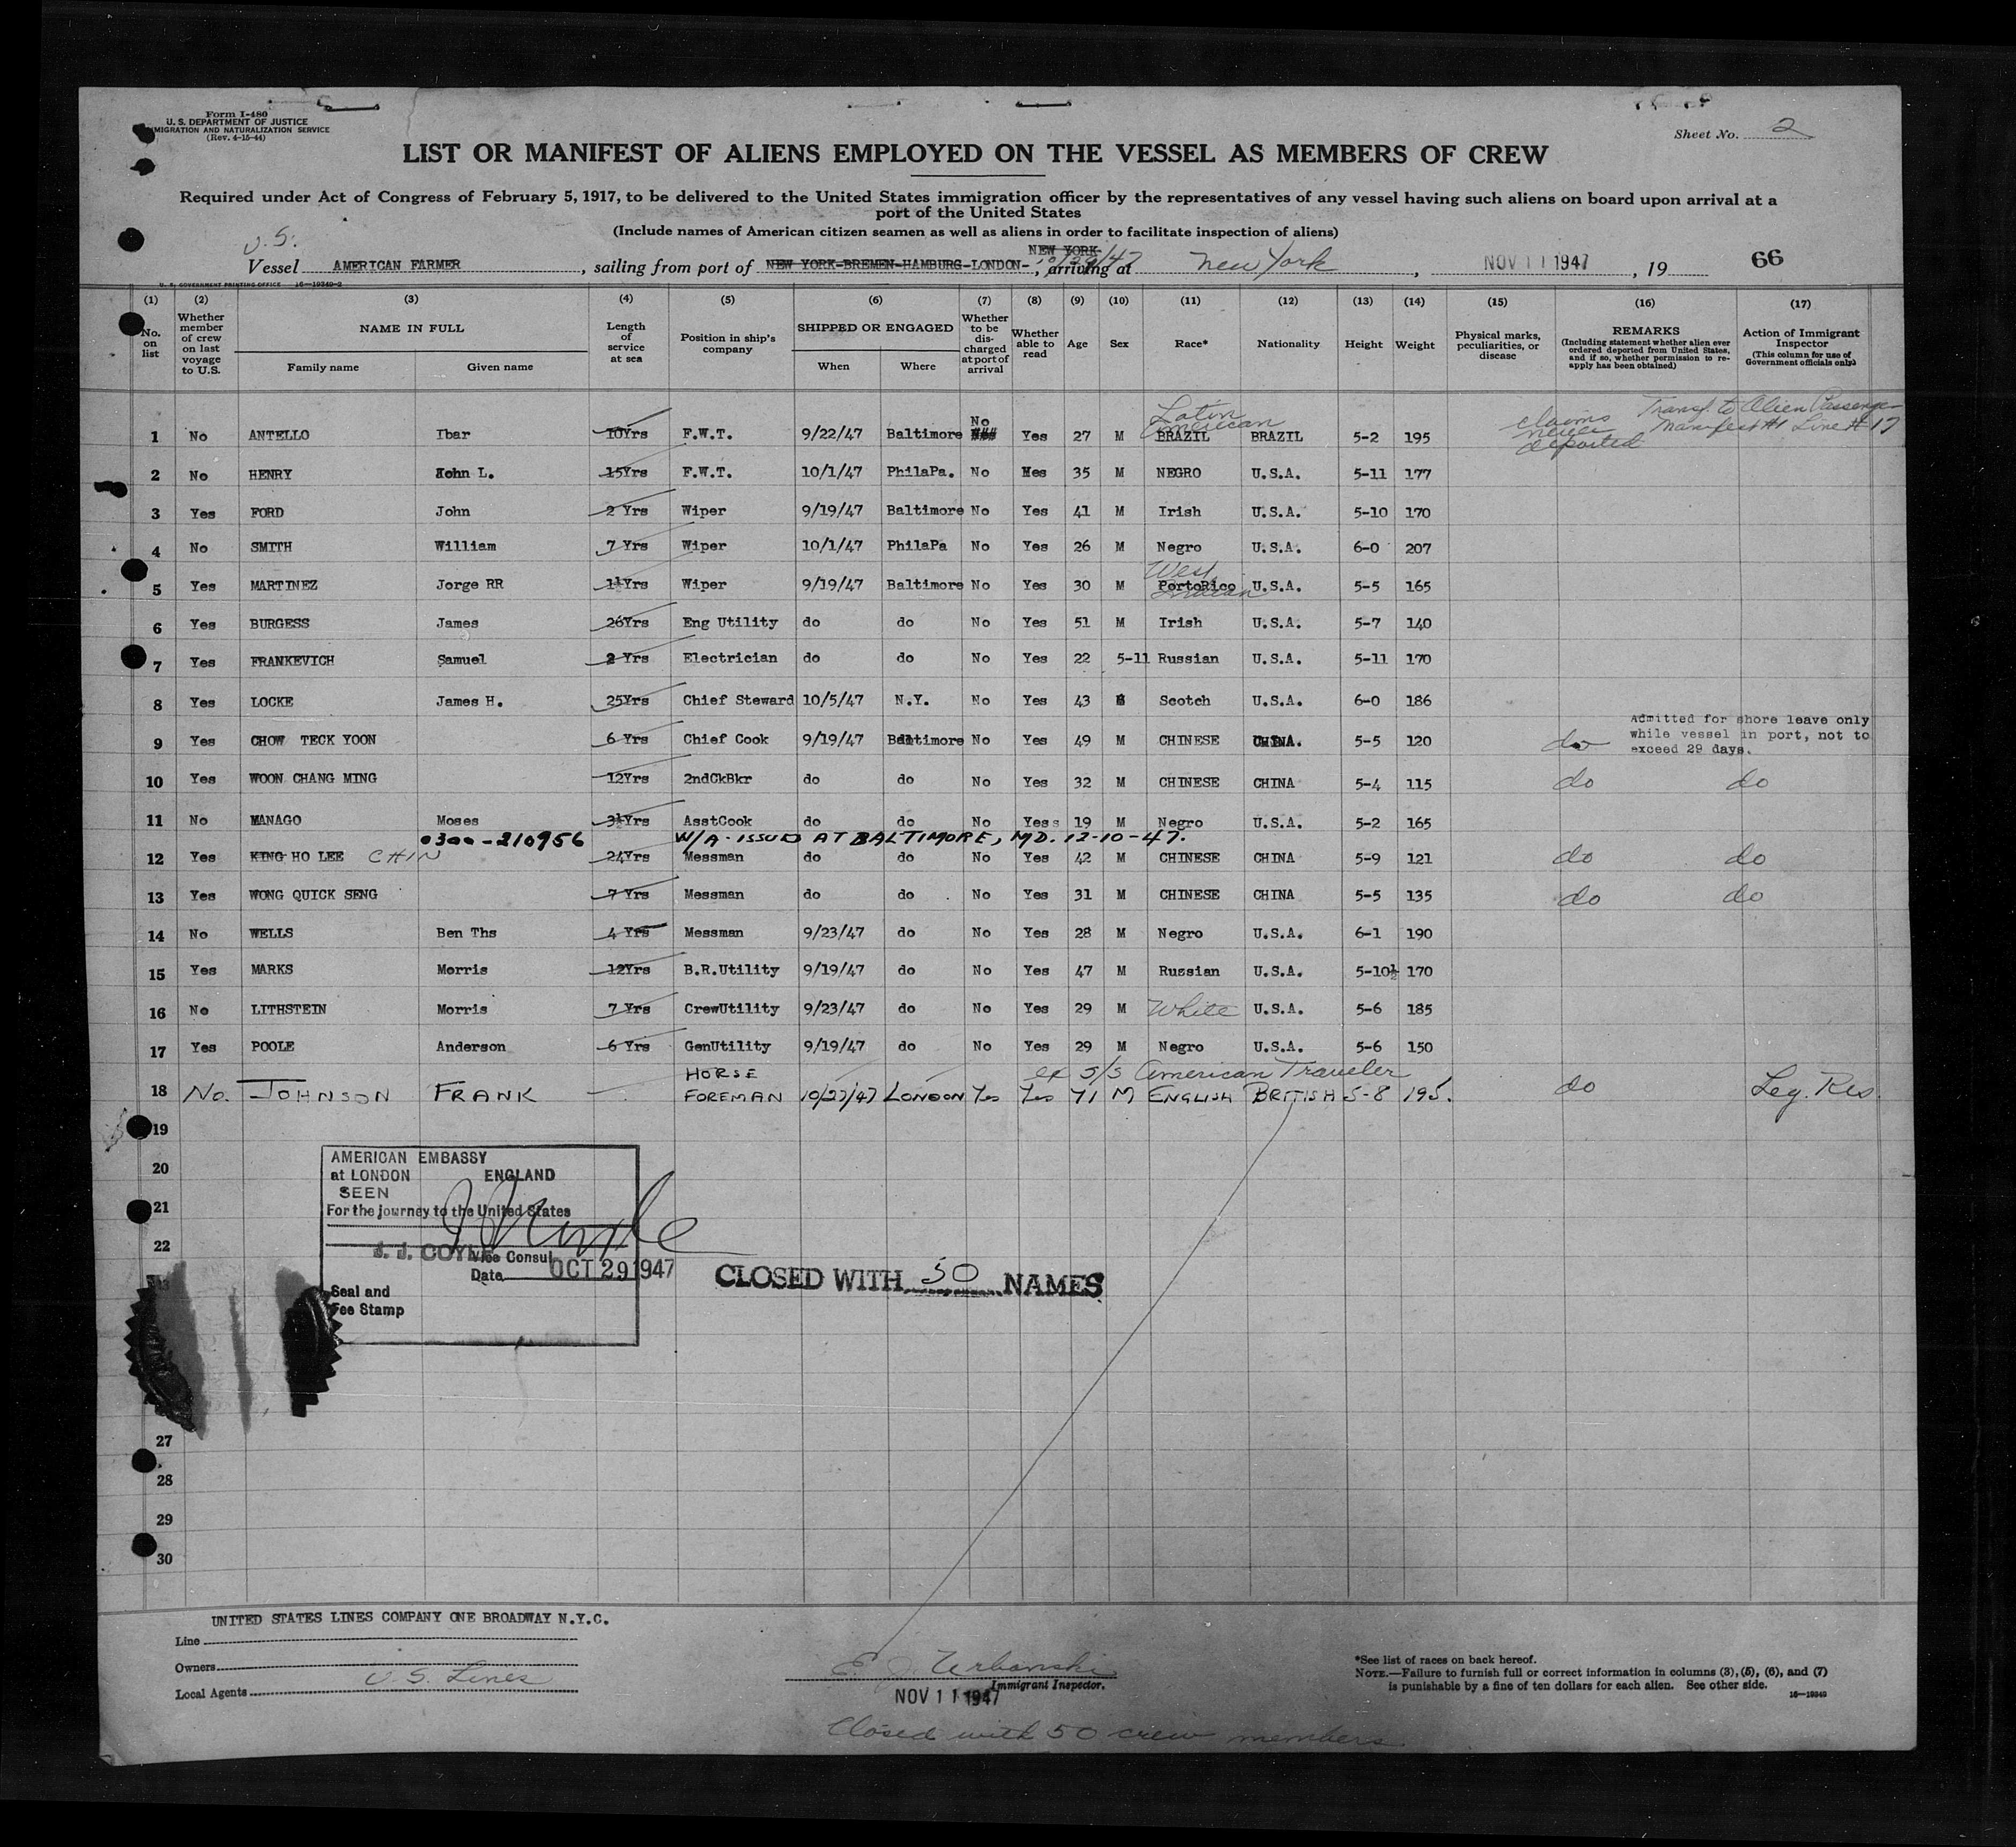 Form I-480
U. S. DEPARTMENT OF JUSTICE
IMMIGRATION AND NATURALIZATION SERVICE
(Rev. 4-15-44)
Sheet No. 2
LIST OR MANIFEST OF ALIENS EMPLOYED ON THE VESSEL AS MEMBERS OF CREW
Required under Act of Congress of February 5, 1917, to be delivered to the United States immigration officer by the representatives of any vessel having such aliens on board upon arrival at a
port of the United States
(Include names of American citizen seamen as well as aliens in order to facilitate inspection of aliens)
U.S. NEW YORK
Vessel AMERICAN FARMER, sailing from port of NEW YORK-BREMEN-HAMBURG-LONDON-, 10/29/47 arriving at New York, NOV 11 1947, 19 66
U. S. GOVERNMENT PRINTING OFFICE 16-19340-2
(1) No. on list
(2) Whether member of crew on last voyage to U.S.
(3) NAME IN FULL Family name Given name
(4) Length of service at sea
(5) Position in ship's company
(6) SHIPPED OR ENGAGED When Where
(7) Whether to be discharged at port of arrival
(8) Whether able to read
(9) Age
(10) Sex
(11) Race*
(12) Nationality
(13) Height
(14) Weight
(15) Physical marks, peculiarities, or disease
(16) REMARKS (Including statement whether alien ever ordered deported from United States, and if so, whether permission to reapply has been obtained)
(17) Action of Immigrant Inspector (This column for use of Government officials only)
1 No ANTELLO Ibar 10Yrs F.W.T. 9/22/47 Baltimore No ### Yes 27 M Latin American BRAZIL BRAZIL 5-2 195 claims never deported Transf. to Alien Passenger Manifest #1 Line #17
2 No HENRY John L. 15Yrs F.W.T. 10/1/47 PhilaPa. No Yes 35 M NEGRO U.S.A. 5-11 177
3 Yes FORD John 2 Yrs Wiper 9/19/47 Baltimore No Yes 41 M Irish U.S.A. 5-10 170
4 No SMITH William 7 Yrs Wiper 10/1/47 PhilaPa No Yes 26 M Negro U.S.A. 6-0 207
5 Yes MARTINEZ Jorge RR 1½Yrs Wiper 9/19/47 Baltimore No Yes 30 M West Indian PortoRico U.S.A. 5-5 165
6 Yes BURGESS James 26Yrs Eng Utility do do No Yes 51 M Irish U.S.A. 5-7 140
7 Yes FRANKEVICH Samuel 2 Yrs Electrician do do No Yes 22 5-11 Russian U.S.A. 5-11 170
8 Yes LOCKE James H. 25Yrs Chief Steward 10/5/47 N.Y. No Yes 43 Scotch U.S.A. 6-0 186
9 Yes CHOW TECK YOON 6 Yrs Chief Cook 9/19/47 Baltimore No Yes 49 M CHINESE CHINA. 5-5 120 do Admitted for shore leave only while vessel in port, not to exceed 29 days.
10 Yes WOON CHANG MING 12Yrs 2ndCkBkr do do No Yes 32 M CHINESE CHINA 5-4 115 do do
11 No MANAGO Moses 3½Yrs AsstCook do do No Yes s 19 M Negro U.S.A. 5-2 165
0300-210956 W/A-ISSUED AT BALTIMORE, MD. 12-10-47.
12 Yes KING HO LEE CHIN 24Yrs Messman do do No Yes 42 M CHINESE CHINA 5-9 121 do do
13 Yes WONG QUICK SENG 7 Yrs Messman do do No Yes 31 M CHINESE CHINA 5-5 135 do do
14 No WELLS Ben Ths 4 Yrs Messman 9/23/47 do No Yes 28 M Negro U.S.A. 6-1 190
15 Yes MARKS Morris 12Yrs B.R.Utility 9/19/47 do No Yes 47 M Russian U.S.A. 5-10½ 170
16 No LITHSTEIN Morris 7 Yrs CrewUtility 9/23/47 do No Yes 29 M White U.S.A. 5-6 185
17 Yes POOLE Anderson 6 Yrs GenUtility 9/19/47 do No Yes 29 M Negro U.S.A. 5-6 150
ex S/S American Traveler
18 No. JOHNSON FRANK HORSE FOREMAN 10/27/47 LONDON Yes Yes 71 M ENGLISH BRITISH 5-8 195. do Leg. Res.
19
20
21
22
27
28
29
30
AMERICAN EMBASSY
at LONDON ENGLAND
SEEN
For the journey to the United States
J. J. COYLE Vice Consul
Date OCT 29 1947
Seal and
Fee Stamp
CLOSED WITH 50 NAMES
UNITED STATES LINES COMPANY ONE BROADWAY N.Y.C.
Line
Owners
Local Agents U S. Lines
E. J. Urbanski
Immigrant Inspector.
NOV 11 1947
Closed with 50 crew members
*See list of races on back hereof.
NOTE.—Failure to furnish full or correct information in columns (3), (5), (6), and (7)
is punishable by a fine of ten dollars for each alien. See other side.
16-19340